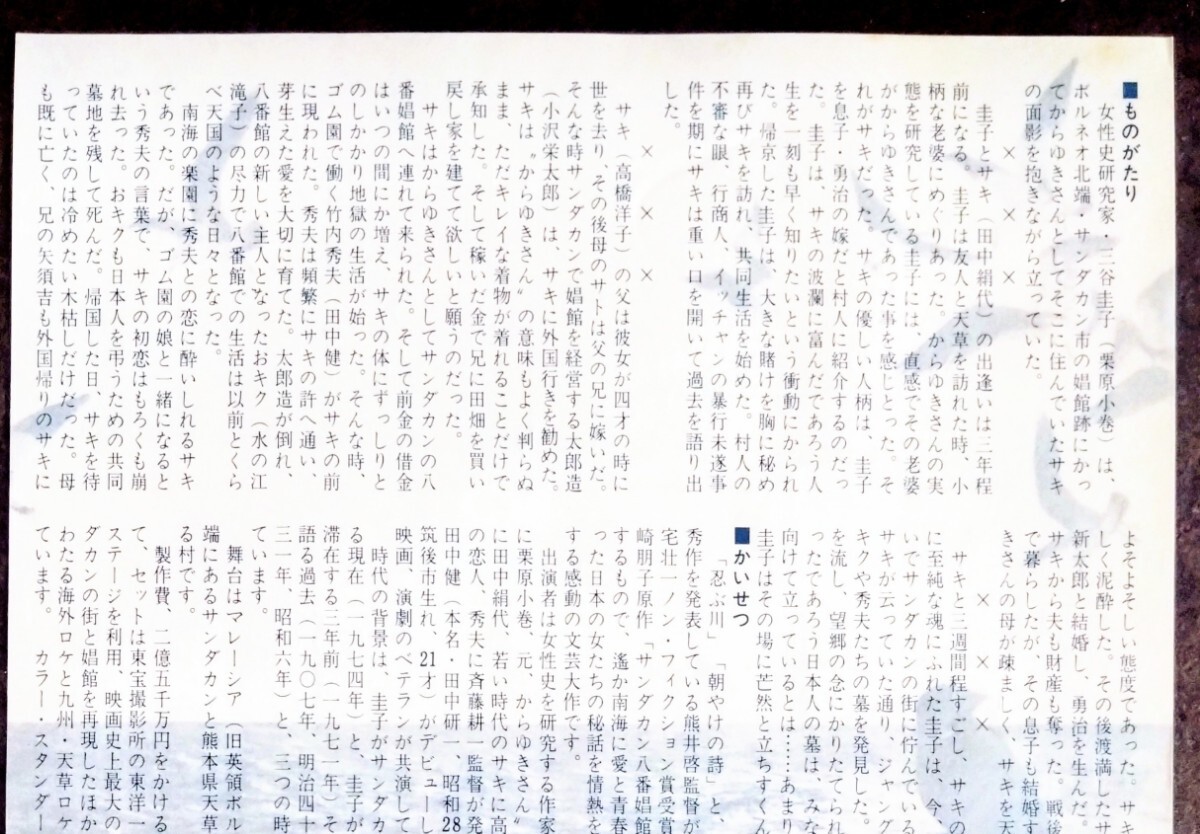 ■ものがたり
女性史研究家・三谷圭子（栗原小巻）は、
ボルネオ北端・サンダカン市の娼館跡にかつ
てからゆきさんとしてそこに住んでいたサキ
の面影を抱きながら立っていた。
× × ×
圭子とサキ（田中絹代）の出逢いは三年程
前になる。圭子は友人と天草を訪れた時、小
柄な老婆にめぐりあった。からゆきさんの実
態を研究している圭子には、直感でその老婆
がからゆきさんであった事を感じとった。そ
れがサキだった。サキの優しい人柄は、圭子
を息子・勇治の嫁だと村人に紹介するのだっ
た。圭子は、サキの波瀾に富んだであろう人
生を一刻も早く知りたいという衝動にかられ
た。帰京した圭子は、大きな賭けを胸に秘め
再びサキを訪れ、共同生活を始めた。村人の
不審な眼、行商人、イッチャンの暴行未遂事
件を期にサキは重い口を開いて過去を語り出
した。
× × ×
サキ（高橋洋子）の父は彼女が四才の時に
世を去り、その後母のサトは父の兄に嫁いだ。
そんな時サンダカンで娼館を経営する太郎造
（小沢栄太郎）は、サキに外国行きを勧めた。
サキは〝からゆきさん〟の意味もよく判らぬ
まま、ただキレイな着物が着れることだけで
承知した。そして稼いだ金で兄に田畑を買い
戻し家を建てて欲しいと願うのだった。
サキはからゆきさんとしてサンダカンの八
番娼館へ連れて来られた。そして前金の借金
はいつの間にか増え、サキの体にずっしりと
のしかかり地獄の生活が始った。そんな時、
ゴム園で働く竹内秀夫（田中健）がサキの前
に現われた。秀夫は頻繁にサキの許へ通い、
芽生えた愛を大切に育てた。太郎造が倒れ、
八番館の新しい主人となったおキク（水の江
滝子）の尽力で八番館での生活は以前とくら
べ天国のような日々となった。
南海の楽園に秀夫との恋に酔いしれるサキ
であった。だが、ゴム園の娘と一緒になると
いう秀夫の言葉で、サキの初恋はもろくも崩
れ去った。おキクも日本人を弔うための共同
墓地を残して死んだ。帰国した日、サキを待
っていたのは冷めたい木枯しだけだった。母
も既に亡く、兄の矢須吉も外国帰りのサキに
よそよそしい態度であった。サキ
しく泥酔した。その後渡満したサ
新太郎と結婚し、勇治を生んだ。
サキから夫も財産も奪った。戦後
で暮らしたが、その息子も結婚す
きさんの母が疎ましく、サキを天
× × ×
サキと三週間程すごし、サキの
に至純な魂にふれた圭子は、今、
いでサンダカンの街に佇んでいる
サキが云っていた通り、ジャング
キクや秀夫たちの墓を発見した。
を流し、望郷の念にかりたてられ
ったであろう日本人の墓は、みな
向けて立っているとは……あまり
圭子はその場に茫然と立ちすくん
■かいせつ
「忍ぶ川」「朝やけの詩」と、
秀作を発表している熊井啓監督が
宅壮一ノン・フィクション賞受賞
崎朋子原作「サンダカン八番娼館
するもので、遙か南海に愛と青春
った日本の女たちの秘話を情熱を
する感動の文芸大作です。
出演者は女性史を研究する作家
に栗原小巻、元、からゆきさん〟
に田中絹代、若い時代のサキに高
の恋人、秀夫に斉藤耕一監督が発
田中健（本名・田中研一、昭和28
筑後市生れ、21才）がデビューし
映画、演劇のベテランが共演して
時代の背景は、圭子がサンダカ
る現在（一九七四年）と、圭子が
滞在する三年前（一九七一年）そ
語る過去（一九〇七年、明治四十
三一年、昭和六年）と、三つの時
ています。
舞台はマレーシア（旧英領ボル
端にあるサンダカンと熊本県天草
る村です。
製作費、二億五千万円をかける
て、セットは東宝撮影所の東洋一
ステージを利用、映画史上最大の
ダカンの街と娼館を再現したほか
わたる海外ロケと九州・天草ロケ
ています。カラー・スタンダー